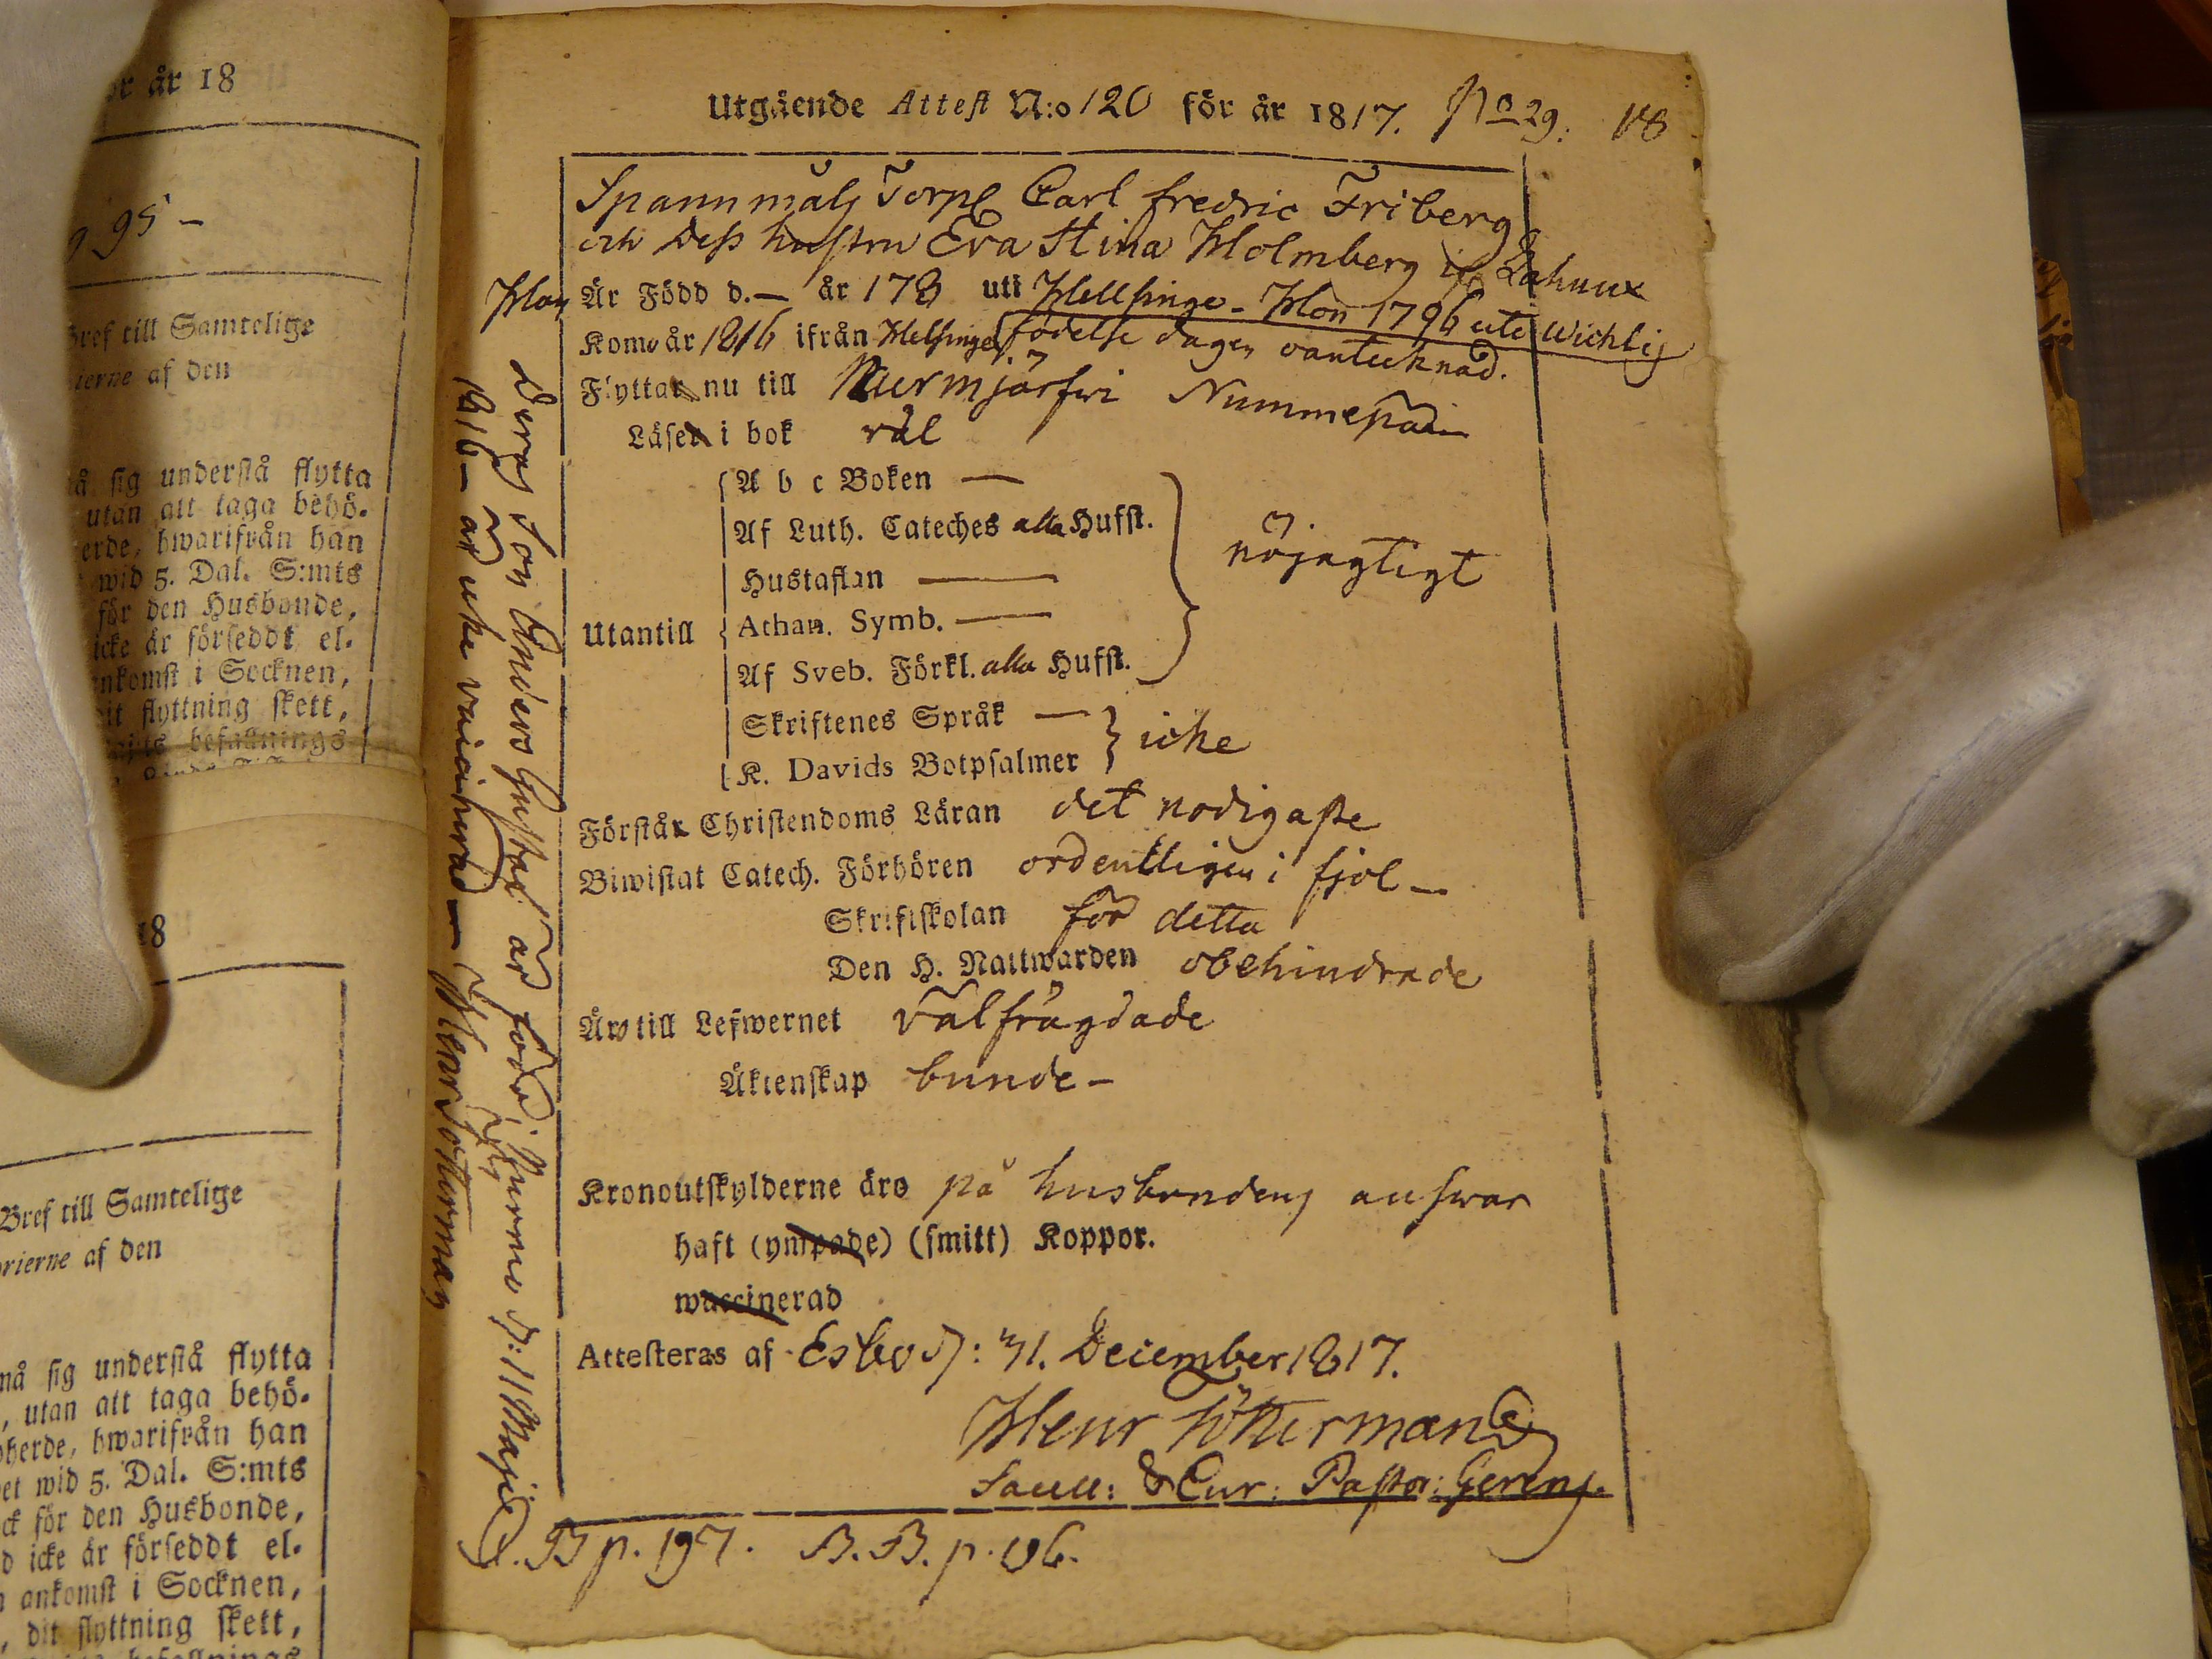 or år 18
95 –
Bref till Samtelige
ierne af den
sig understå flytta
utan att taga behö-
erde, hwarifrån han
wid 5. Dal. S:mts
för den Husbonde,
icke är försedd el-
nkomst i Socknen,
it flyttning skett,
befallnings
18
Bref till Samtelige
orierne af den
må sig understå flytta
, utan att taga behö-
oherde, hwarifrån han
et wid 5. Dal. S:mts
ck för den Husbonde,
d icke är förseddt el-
ankomst i Socknen,
, dit flyttning skett,
Utgående Attest N:o 120 för år 1817. No 29. 18
Spannmåls Torp Carl Fredric Friberg
och Dess hustru Eva Stina Holmberg Lahnus
Han Är Född d. — år 178 uti Helsinge – Hon 1796 uti Wichtis
Komo år 1816 ifrån Helsinge födelse dagen oantecknad.
Flyttar nu till Nurmjärfwi Nummepää
Läser i bok väl
A b c Boken —
Af Luth. Cateches alla Hufst.
Hustaflan —
nöjagtigt
Utantill
Athan. Symb. —
Af Sveb. Förkl. alla Hufst.
Skriftenes Språk —
K. Davids Botpsalmer
icke
Förstår Christendoms Läran det nödigaste
Biwistat Catech. Förhören ordentligen i fjol –
Skriftskolan för detta
Den H. Nattwarden obehindrade
Äro till Lefwernet välfrägdade
Äktenskap bundne –
Kronoutskylderne äro på husbondens answar
haft (ympade) (smitt) Koppor.
waccinerad
Attesteras af Esbo d: 31. December 1817.
Henr Töttterman
Sacell: & Cur: Pastor: Gerens.
B p. 197. B.B. p. 196.
Deras Son Anders Gustaf är född d: 11 Maji
1816 – är icke vaccinerad – Henr Tötterman